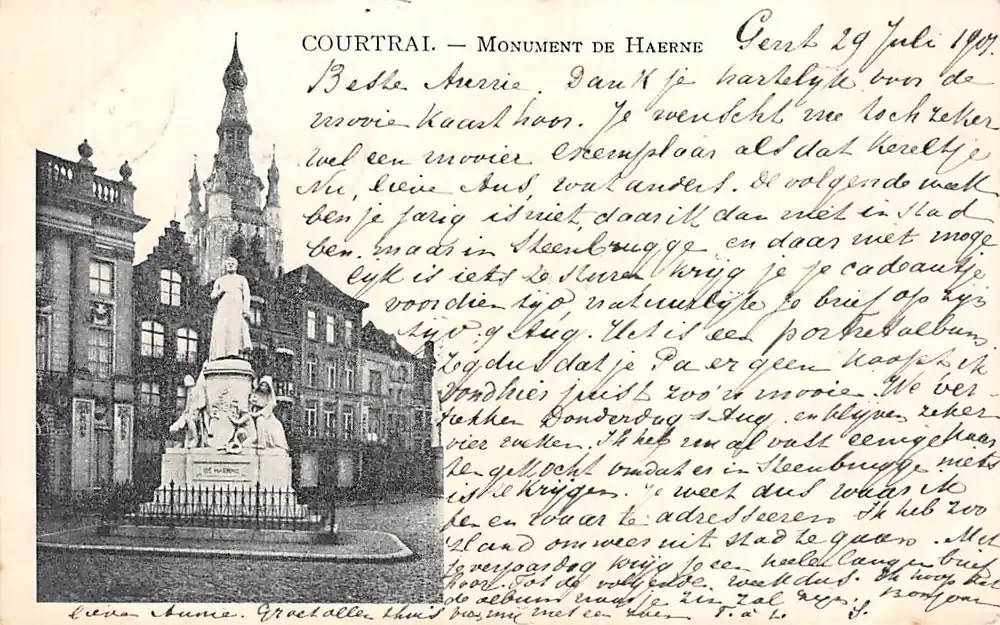 COURTRAI. — MONUMENT DE HAERNE
29 Juli 1901.
Beste Annie. Dank je hartelijk voor de
mooie kaart hoor. Je wenscht me toch zeker
wel een mooier exemplaar als dat kereltje
Nu, lieve Ans, wat anders. De volgende week
ben je jarig is 't niet, daar ik dan niet in stad
ben, maar in Steenbrugge en daar niet moge
lijk is iets te sturen krijg je je cadeautje
voordien tijd natuurlijk. Je brief op zijn
tijd. 9 Aug. Het is een portretalbum
Zeg dus dat je Pa er geen koopt ik
vond hier juist zoo'n mooie. We ver-
trekken Donderdag 1 Aug. en blijven zeker
vier weken. Ik heb nu al vast eenige kaar
ten gekocht omdat er in Steenbrugge niets
is te krijgen. Je weet dus waar ik
ben en waar te adresseeren. Ik heb zoo
't land om weer uit stad te gaan. Met
je verjaardag krijg je een heele langen brief
hoor. Tot de volgende week dus. Ik hoop dat
de album naar je zin zal zijn. Bonjour
lieve Annie. Groet allen thuis van mij met een zoen T. à t. S.
DE HAERNE